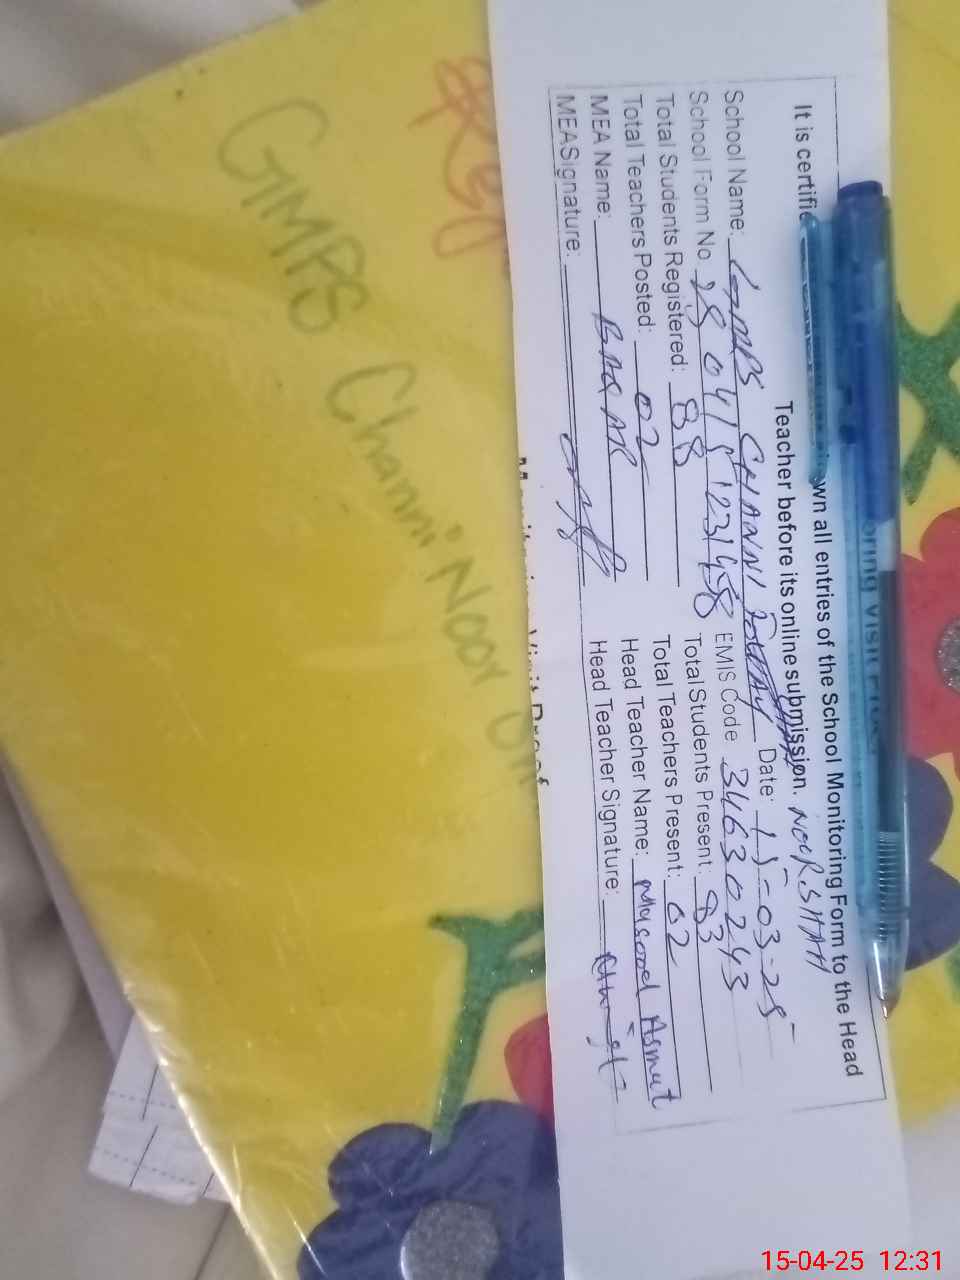 It is certifie wn all entries of the School Monitoring Form to the Head
Teacher before its online submission. NOOR SHAH
School Name: GMPS CHANNI Date: 15-03-25
School Form No. 25 0415 1231458 EMIS Code 34630243
Total Students Registered: 88 Total Students Present: 83
Total Teachers Posted: 02 Total Teachers Present: 02
MEA Name: Head Teacher Name: Masood Asmat
MEASignature: Head Teacher Signature:
oring Visit Pro
Visit Proof
GMPS Channi Noor
Reg
15-04-25 12:31